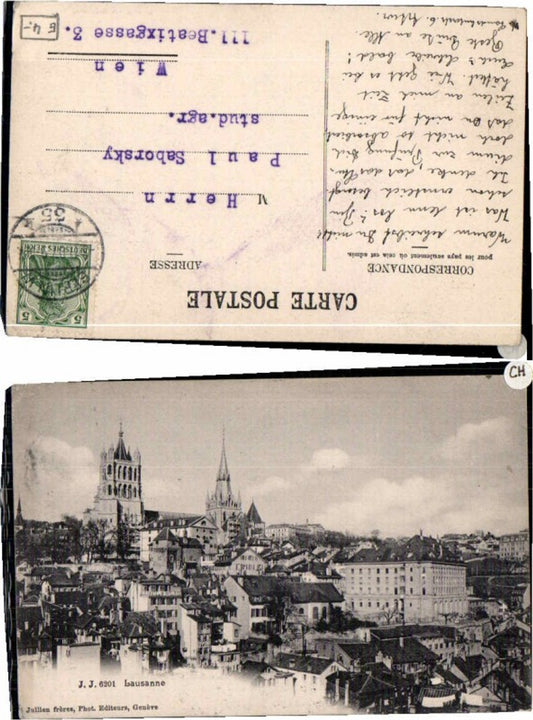 CARTE POSTALE
CORRESPONDANCE
pour les pays seulement où cela est admis.
ADRESSE
Warum schreibst Du nicht
Was ist denn los? Bin
schon ernstlich besorgt
Ich denke, daß das
zur Prüfung Dich
doch nicht so absorbiert
daß Du nicht für einige
Zeilen an mich Zeit
hättest. Wie geht es bei
Euch? Schreibe bald!
Beste Grüße an Alle
M
Herrn
Paul Saborsky
stud.agr.
Wien
III.Beatixgasse 3.
DEUTSCHES REICH
5
5
55
E 4.-
CH
J. J. 6201 Lausanne
Jullien frères, Phot. Editeurs, Genève